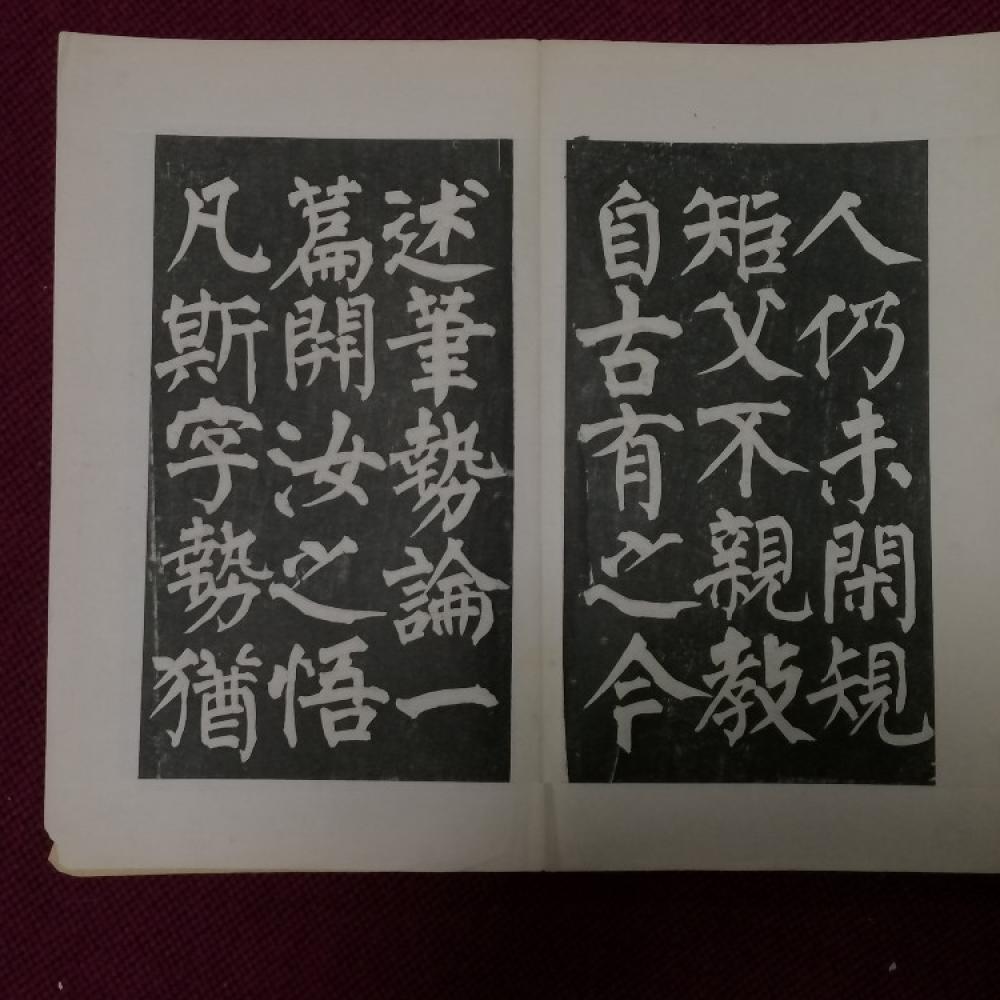 人仍未閑規
矩父不親教
自古有之今
述筆勢論一
篇開汝之悟
凡斯字勢猶